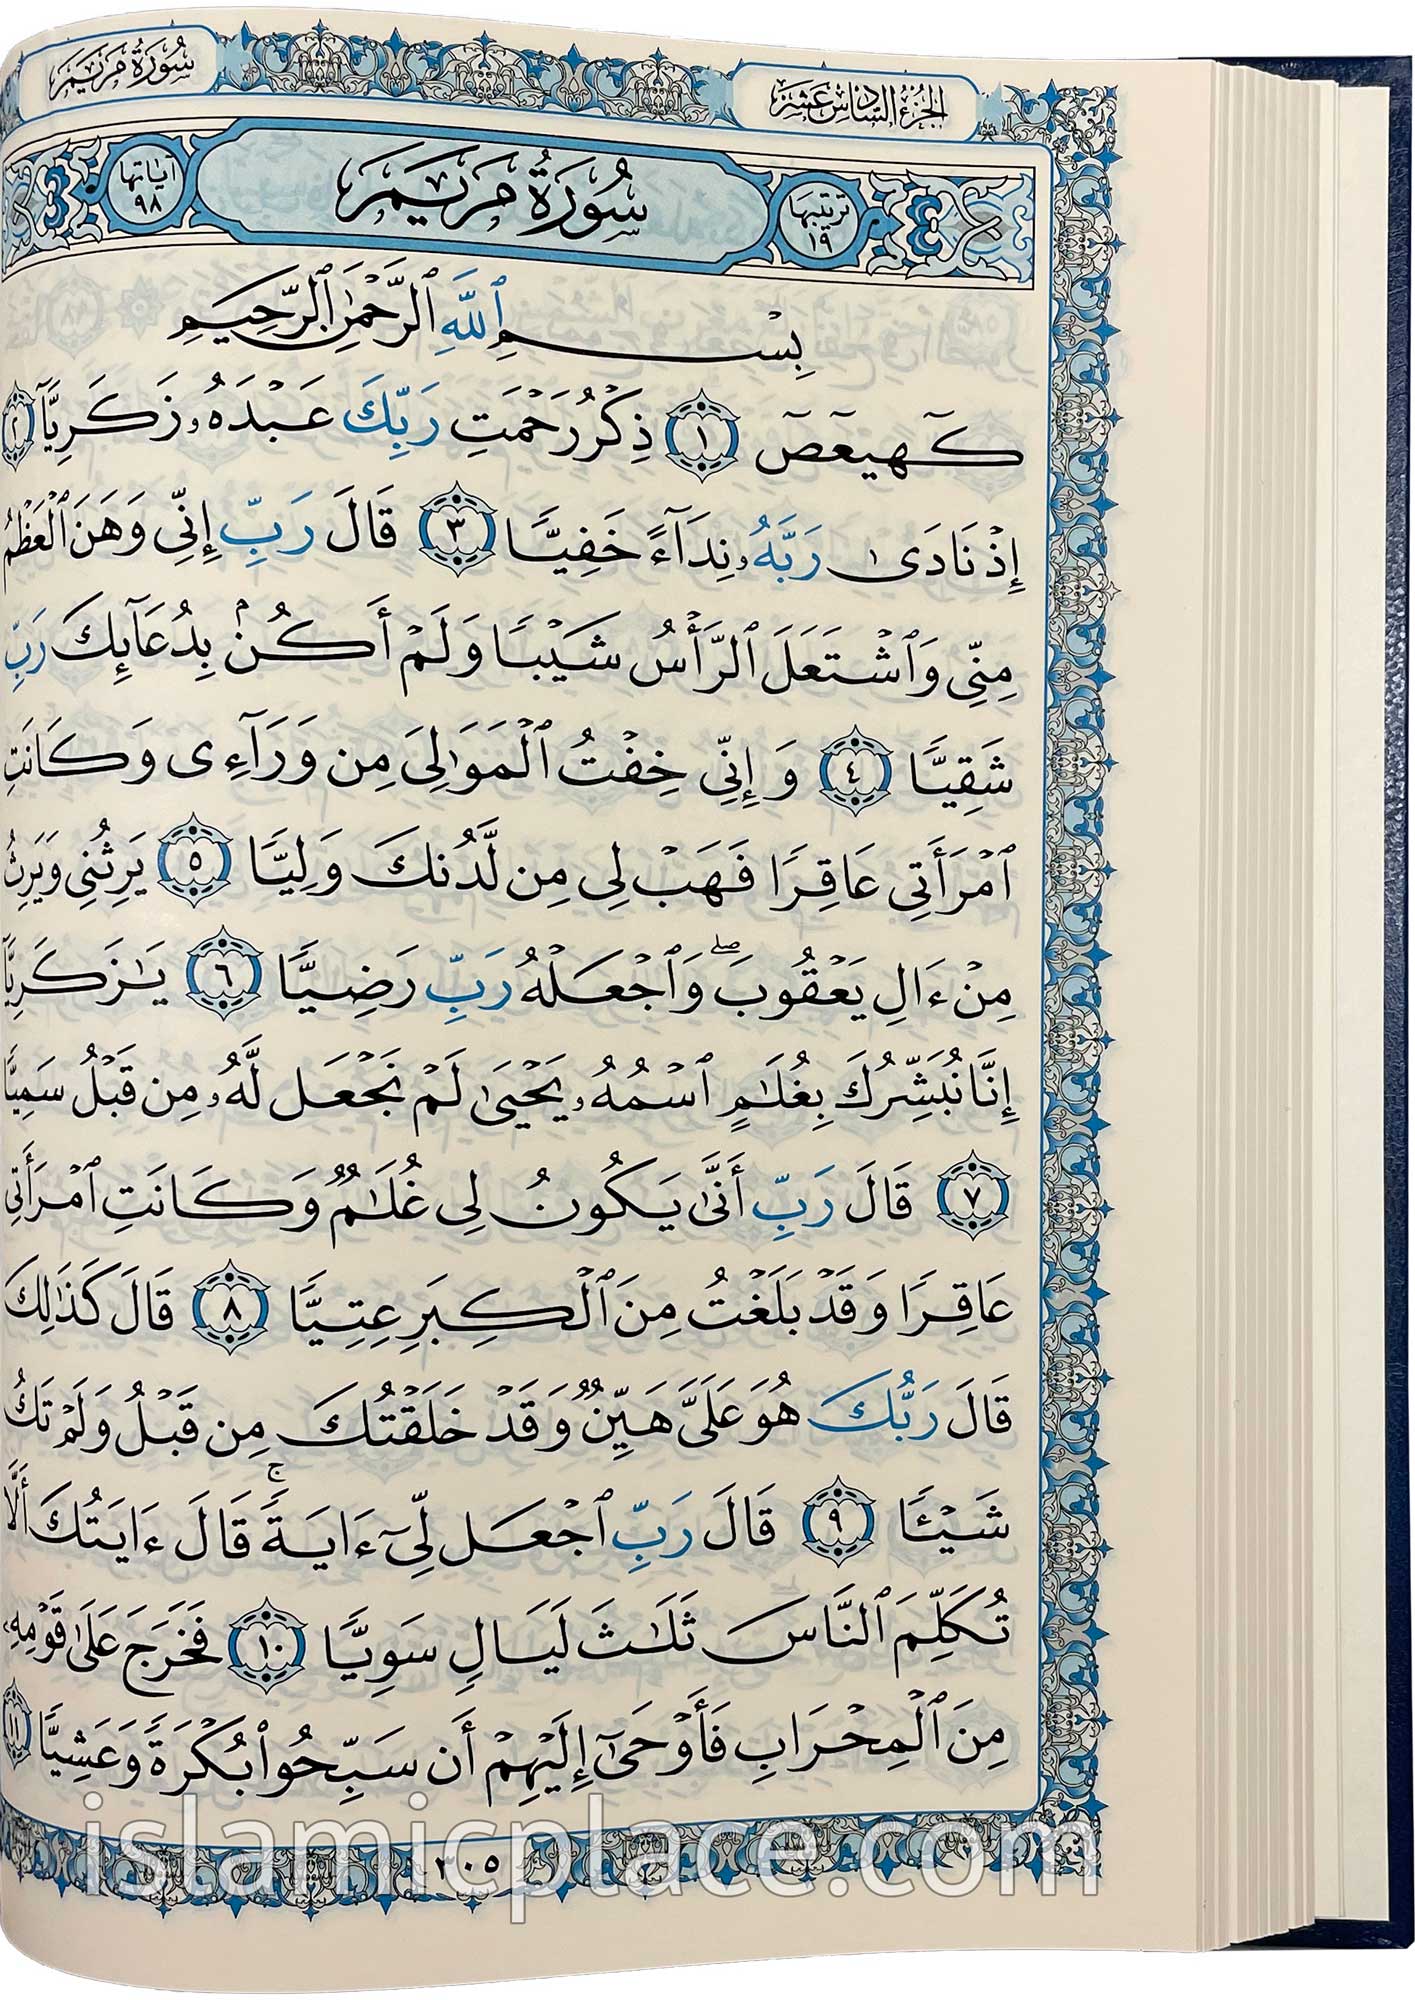 سُورَةُ مَرْيَمَ
الجُزْءُ السَّادِسَ عَشَرَ
ترتيبها ١٩
سُورَةُ مَرْيَمَ
آياتها ٩٨
بِسْمِ ٱللَّهِ ٱلرَّحْمَٰنِ ٱلرَّحِيمِ
كٓهيعٓصٓ ١ ذِكْرُ رَحْمَتِ رَبِّكَ عَبْدَهُۥ زَكَرِيَّآ ٢
إِذْ نَادَىٰ رَبَّهُۥ نِدَآءً خَفِيًّا ٣ قَالَ رَبِّ إِنِّى وَهَنَ ٱلْعَظْمُ
مِنِّى وَٱشْتَعَلَ ٱلرَّأْسُ شَيْبًا وَلَمْ أَكُنۢ بِدُعَآئِكَ رَبِّ
شَقِيًّا ٤ وَإِنِّى خِفْتُ ٱلْمَوَٰلِىَ مِن وَرَآءِى وَكَانَتِ
ٱمْرَأَتِى عَاقِرًا فَهَبْ لِى مِن لَّدُنكَ وَلِيًّا ٥ يَرِثُنِى وَيَرِثُ
مِنْ ءَالِ يَعْقُوبَ ۖ وَٱجْعَلْهُ رَبِّ رَضِيًّا ٦ يَٰزَكَرِيَّآ
إِنَّا نُبَشِّرُكَ بِغُلَٰمٍ ٱسْمُهُۥ يَحْيَىٰ لَمْ نَجْعَل لَّهُۥ مِن قَبْلُ سَمِيًّا
٧ قَالَ رَبِّ أَنَّىٰ يَكُونُ لِى غُلَٰمٌ وَكَانَتِ ٱمْرَأَتِى
عَاقِرًا وَقَدْ بَلَغْتُ مِنَ ٱلْكِبَرِ عِتِيًّا ٨ قَالَ كَذَٰلِكَ
قَالَ رَبُّكَ هُوَ عَلَىَّ هَيِّنٌ وَقَدْ خَلَقْتُكَ مِن قَبْلُ وَلَمْ تَكُ
شَيْـًٔا ٩ قَالَ رَبِّ ٱجْعَل لِّىٓ ءَايَةً ۚ قَالَ ءَايَتُكَ أَلَّا
تُكَلِّمَ ٱلنَّاسَ ثَلَٰثَ لَيَالٍ سَوِيًّا ١٠ فَخَرَجَ عَلَىٰ قَوْمِهِۦ
مِنَ ٱلْمِحْرَابِ فَأَوْحَىٰٓ إِلَيْهِمْ أَن سَبِّحُوا۟ بُكْرَةً وَعَشِيًّا ١١
٣٠٥
islamicplace.com